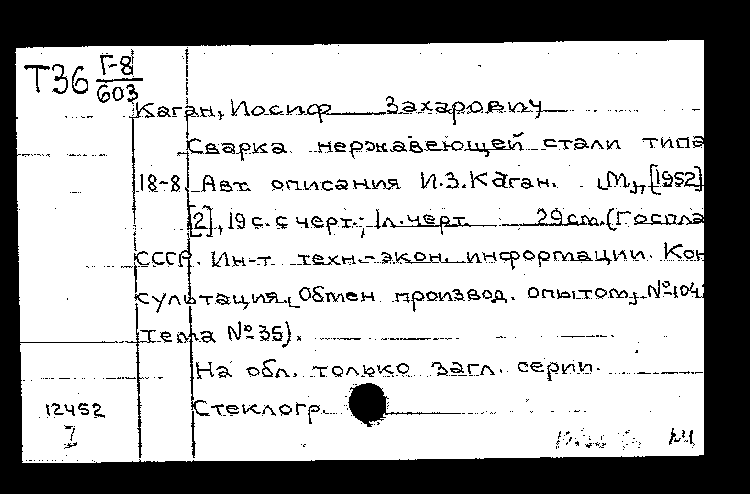 Т36 Г-8
603
Каган, Иосиф Захарович
Сварка нержавеющей стали типа
18-8. Авт. описания И.З.Каган. [М.], [1952]
[2], 19 с. с черт.; 1л. черт. 29 см. (Госпла
СССР. Ин-т техн.-экон. информации. Кон
сультация. [Обмен производ. опытом]. №
Тема № 35).
На обл. только загл. серии.
12452 Стеклогр.